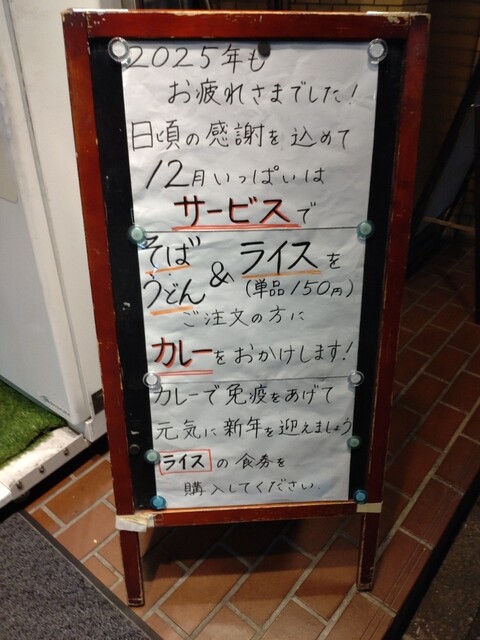 2025年も
お疲れさまでした!
日頃の感謝を込めて
12月いっぱいは
サービスで
そば・うどん & ライスを
(単品150円)
ご注文の方に
カレーをおかけします!
カレーで免疫をあげて
元気に新年を迎えましょう
ライスの食券を
購入してください.